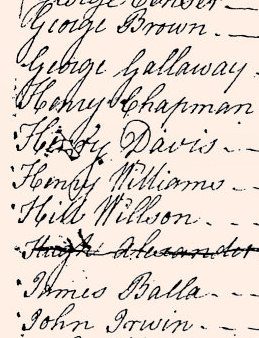 George
George Brown
George Gallaway
Henry Chapman
Henry Davis
Henry Williams
Hill Willson
Hugh Alexander
James Balla
John Irwin